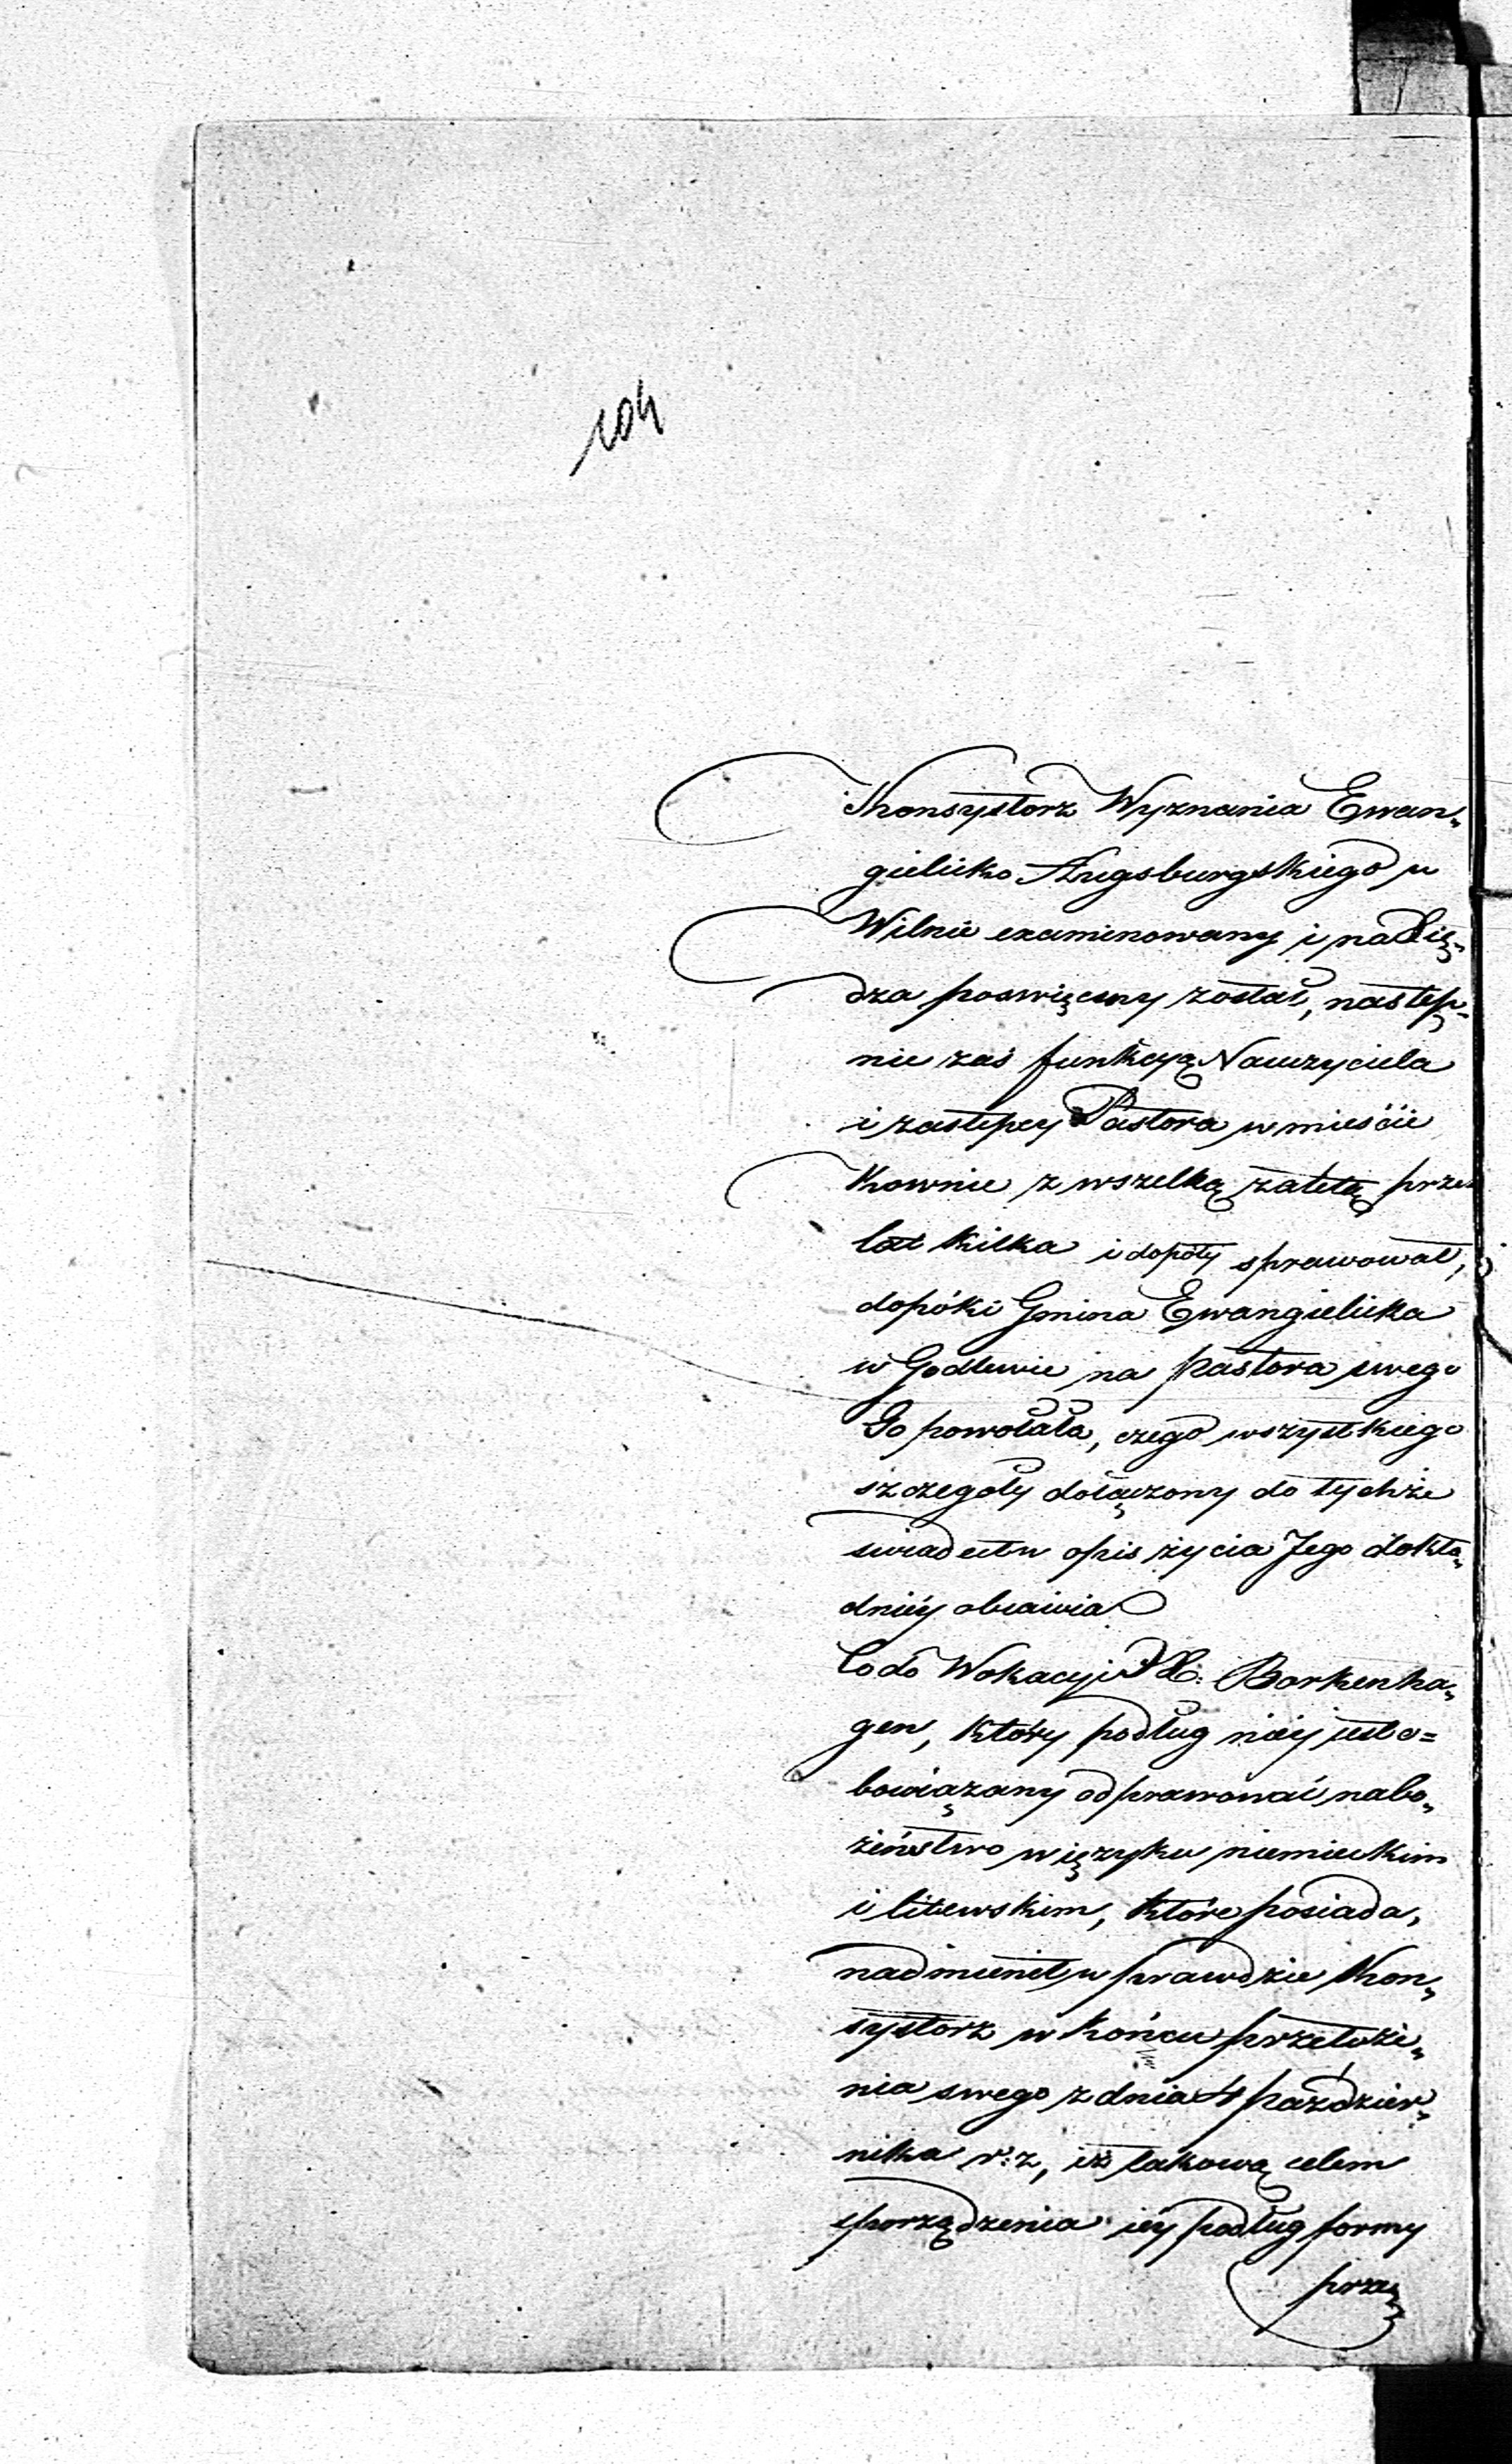 104
Konsystorz Wyznania Ewan„
gielicko Augsburgskiego w
Wilnie examinowany i na Xię„
dza poswięcony został, następ„
nie zaś funkcyą Nauczyciela
i zastępcy Pastora w mieście
Kownie z wszelką zaletą przez
lat kilka i dopóty sprawował,
dopóki Gmina Ewangielicka
w Godlewie na Pastora swego
Go powołała, czego wszystkiego
szczegóły dołączony do tychże
swiadectw opis życia Jego dokła„
dniéy obiawia
Co do Wokacyi X. Borkenha„
gen, który podług niéy jest o=
bowiązany odprawować nabo„
żeństwo w ięzyku niemieckim
i litewskim, które posiada,
nadmienił w prawdzie Kon„
systorz w końcu przełoże„
nia swego z dnia 4 paździer„
nika r: z, iż takową celem
sporządzenia iéy podług formy
prze„